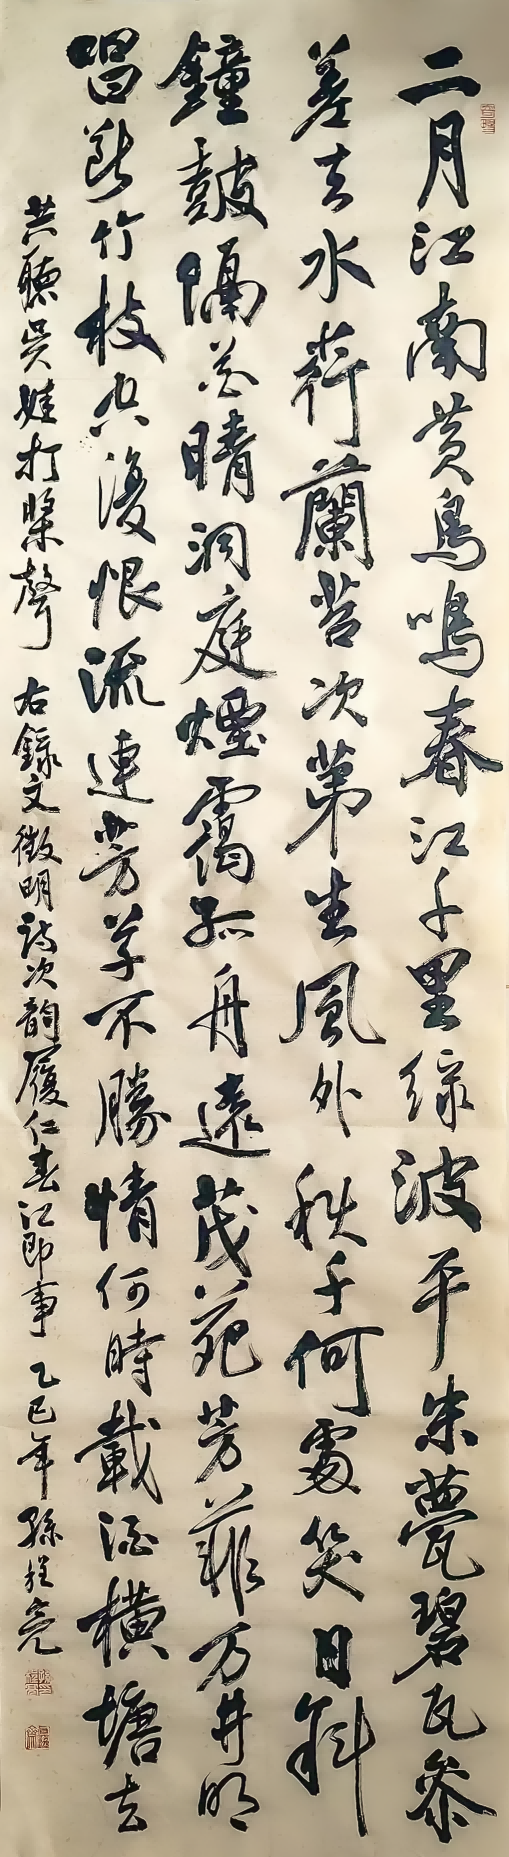 二月江南黄鸟鳴春江千里緑波平朱甍碧瓦参
差去水荇蘭苕次第生風外秋千何處笑日斜
鐘鼓隔花晴洞庭煙靄孤舟遠茂苑芳菲万井明
唱断竹枝空復恨流連芳草不勝情何時載酒横塘去
共聽吳娃打槳聲 右録文徵明詩次韵履仁春江即事 乙巳年孫程亮